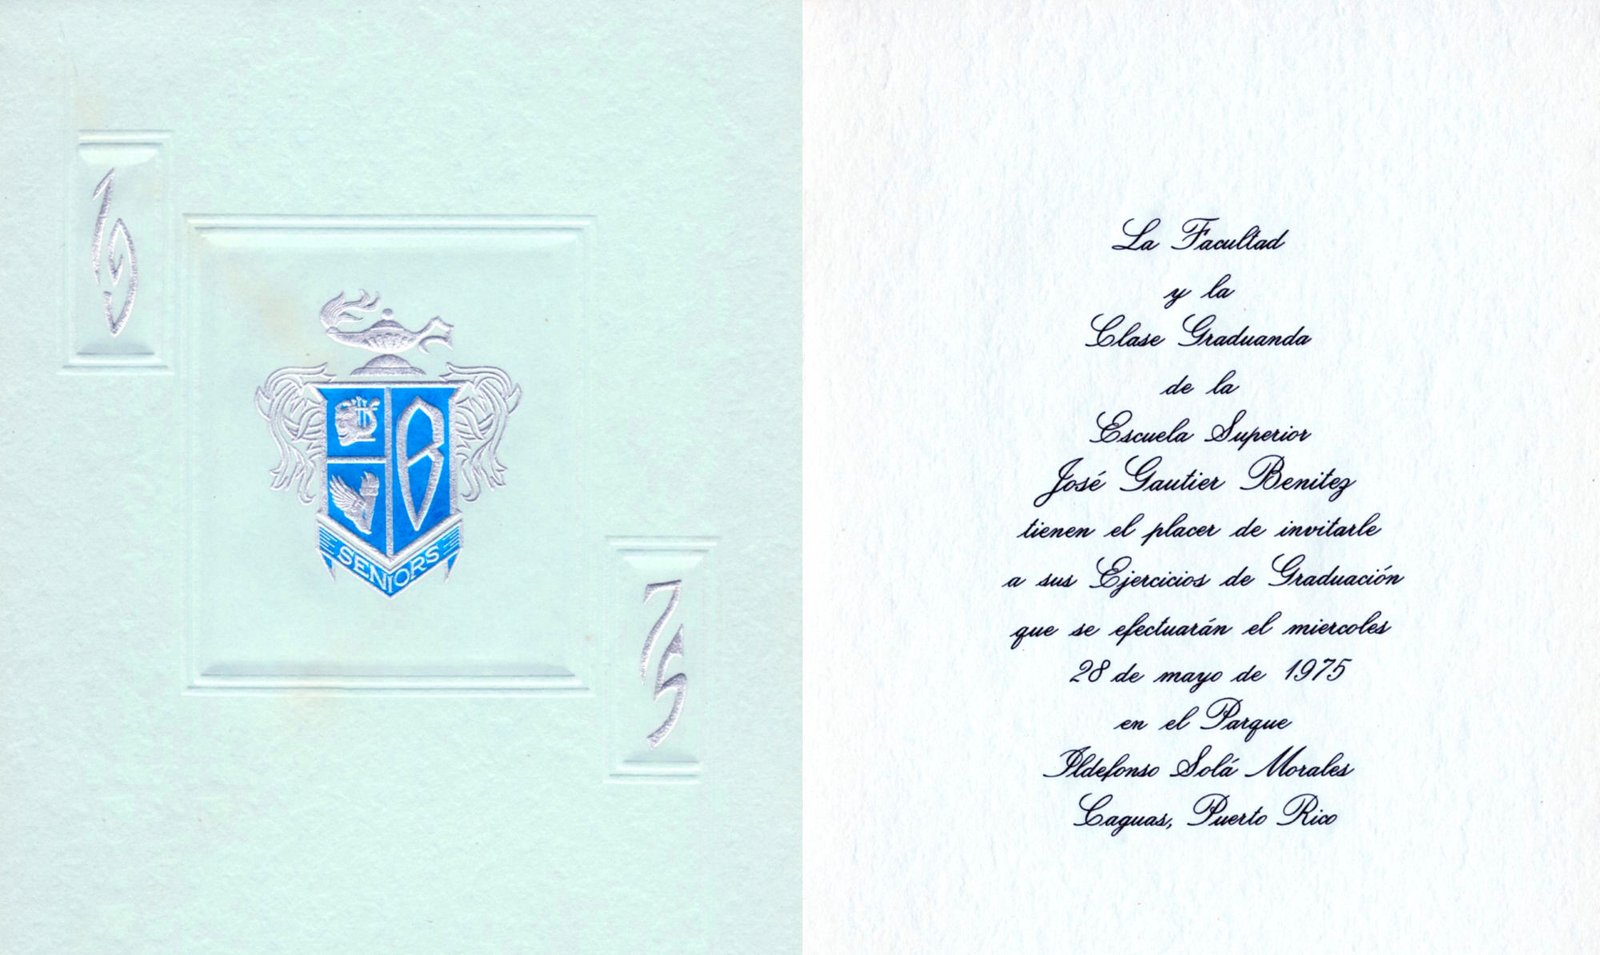 19
B
SENIORS
75
La Facultad
y la
Clase Graduanda
de la
Escuela Superior
José Gautier Benitez
tienen el placer de invitarle
a sus Ejercicios de Graduación
que se efectuarán el miercoles
28 de mayo de 1975
en el Parque
Ildefonso Solá Morales
Caguas, Puerto Rico